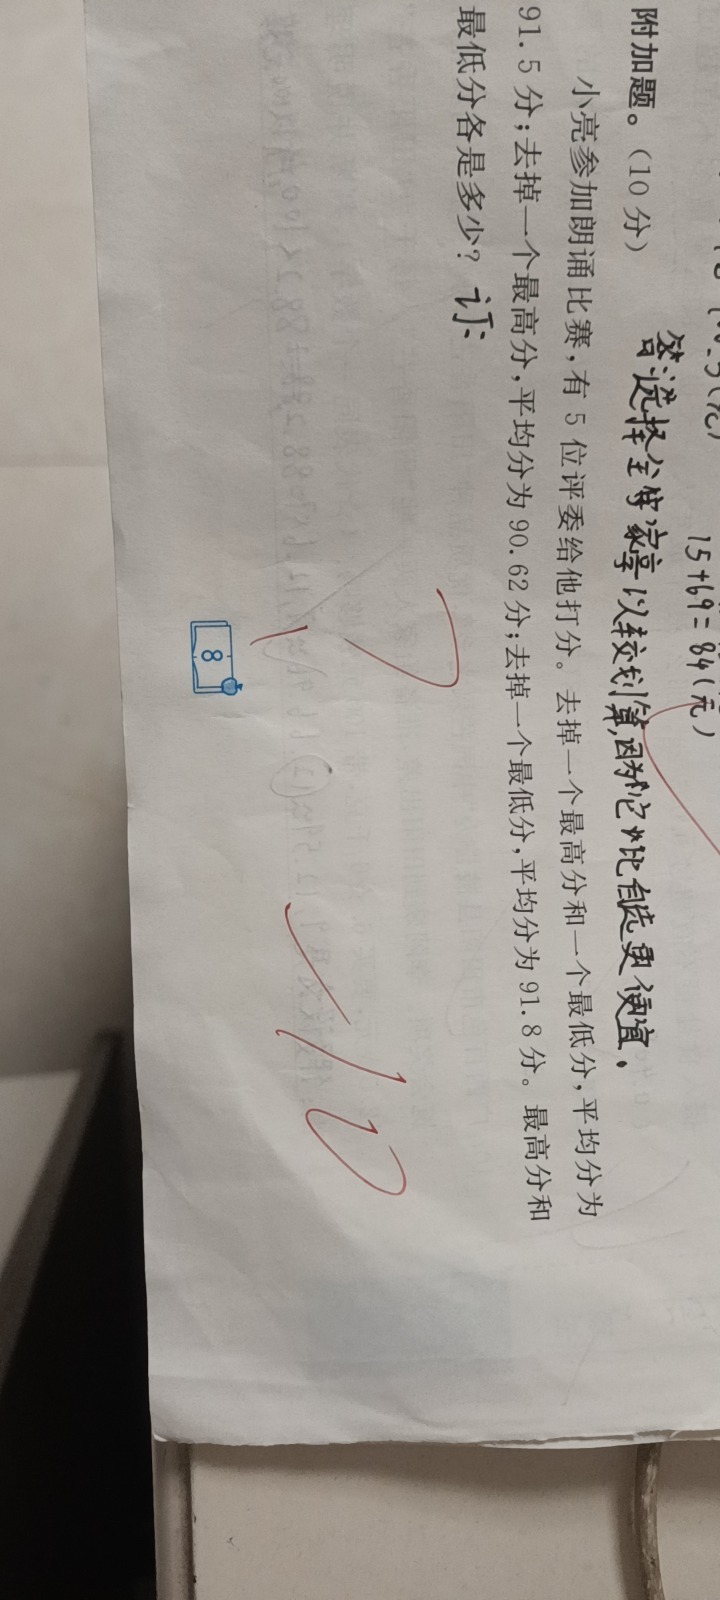 15+69=84(元)
答:选择全家享以较划算,因为它比自选更便宜.
附加题。(10分)
小亮参加朗诵比赛,有5位评委给他打分。去掉一个最高分和一个最低分,平均分为
91.5分;去掉一个最高分,平均分为90.62分;去掉一个最低分,平均分为91.8分。最高分和
最低分各是多少? 订:
-10
8